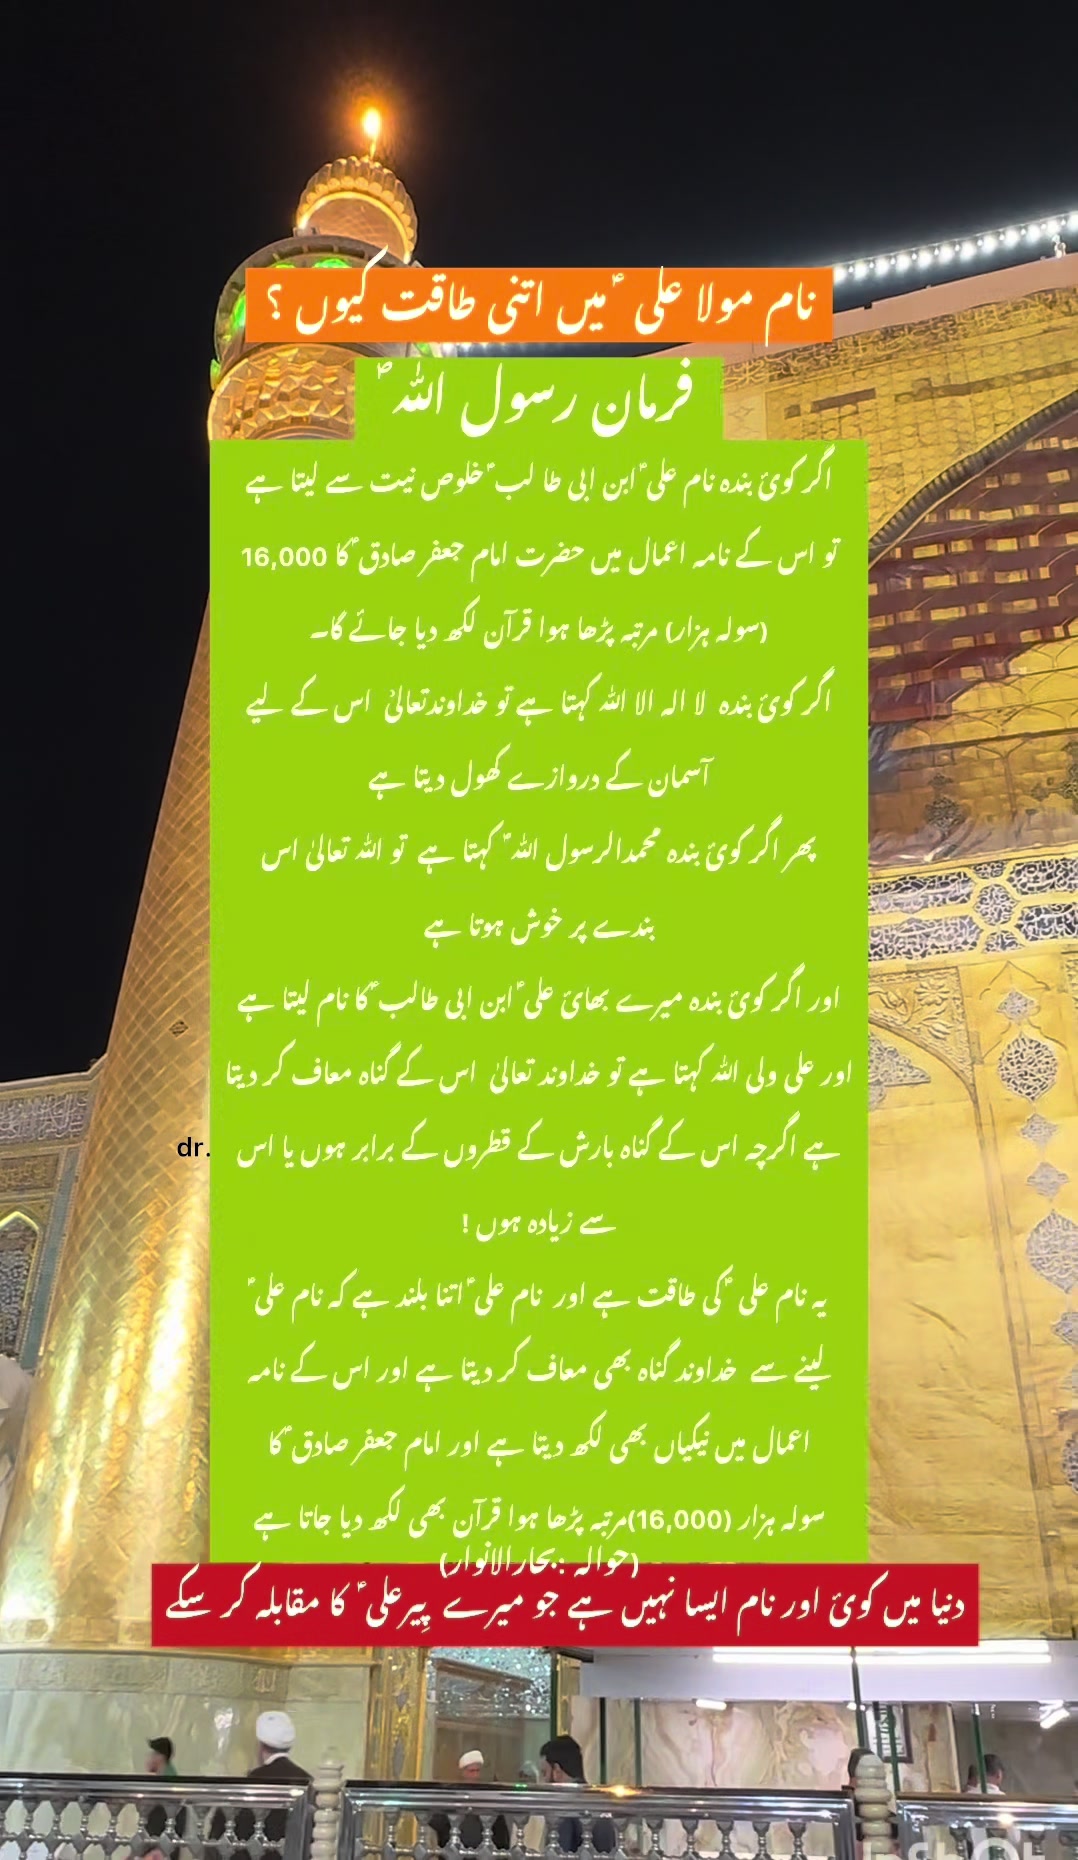 نام مولا علی ؑ میں اتنی طاقت کیوں ؟
فرمان رسول اللہ ؐ
اگر کوئ بندہ نام علی ؑ ابن ابی طا لب ؑ خلوص نیت سے لیتا ہے
تو اس کے نامہ اعمال میں حضرت امام جعفر صادق ؑ کا 16,000
(سولہ ہزار) مرتبہ پڑھا ہوا قرآن لکھ دیا جائے گا۔
اگر کوئ بندہ لا الہ الا اللہ کہتا ہے تو خداوندتعالیٰ اس کے لیے
آسمان کے دروازے کھول دیتا ہے
پھر اگر کوئ بندہ محمدالرسول اللہ ؐ کہتا ہے تو اللہ تعالیٰ اس
بندے پر خوش ہوتا ہے
اور اگر کوئ بندہ میرے بھائ علی ؑ ابن ابی طالب ؑ کا نام لیتا ہے
اور علی ولی اللہ کہتا ہے تو خداوند تعالیٰ اس کے گناہ معاف کر دیتا
ہے اگرچہ اس کے گناہ بارش کے قطروں کے برابر ہوں یا اس
dr.
سے زیادہ ہوں !
یہ نام علی ؑ کی طاقت ہے اور نام علی ؑ اتنا بلند ہے کہ نام علی ؑ
لینے سے خداوند گناہ بھی معاف کر دیتا ہے اور اس کے نامہ
اعمال میں نیکیاں بھی لکھ دیتا ہے اور امام جعفر صادق ؑ کا
سولہ ہزار (16,000)مرتبہ پڑھا ہوا قرآن بھی لکھ دیا جاتا ہے
(حوالہ :بحارالانوار)
دنیا میں کوئ اور نام ایسا نہیں ہے جو میرے پِیرعلی ؑ کا مقابلہ کر سکے
InShOt